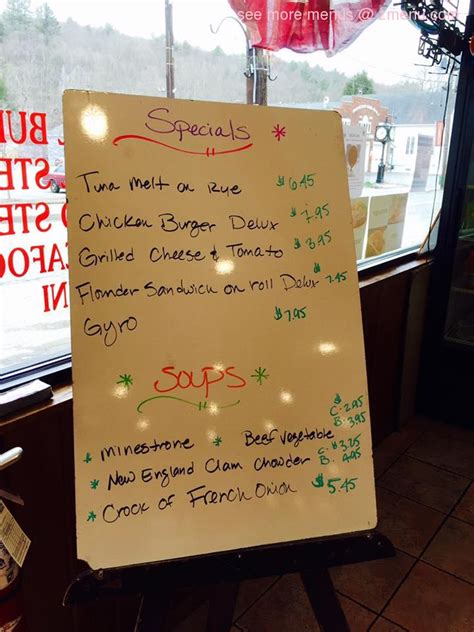 see more menus @ zmenu.com
Specials *
Tuna Melt on Rye $6.45
Chicken Burger Delux $7.95
Grilled Cheese & Tomato $3.95
Flounder Sandwich on roll Delux $7.45
Gyro $7.95
* Soups *
* Minestrone * Beef Vegetable C. 2.95 B. 3.95
* New England Clam Chowder C. $3.25 B. 4.95
* Crock of French Onion $5.45